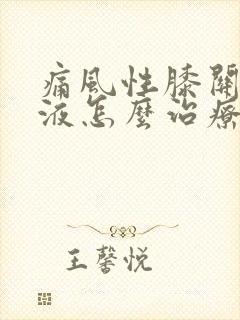 痛風性膝關
液怎麼治療
王馨悦